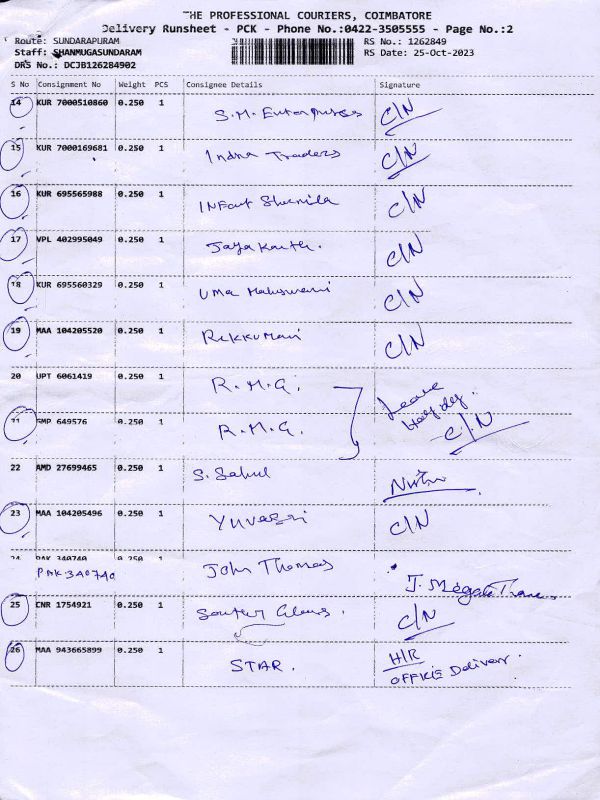 THE PROFESSIONAL COURIERS, COIMBATORE
Delivery Runsheet - PCK - Phone No.:0422-3505555 - Page No.:2
Route: SUNDARAPURAM RS No.: 1262849
Staff: SHANMUGASUNDARAM RS Date: 25-Oct-2023
DRS No.: DCJB126284902
S No Consignment No Weight PCS Consignee Details Signature
14 KUR 7000510860 0.250 1 S.M. Enterprises C/N
15 KUR 7000169681 0.250 1 Indna Traders C/N
16 KUR 695565988 0.250 1 INFant Sharmila C/N
17 VPL 402995049 0.250 1 Jaya Kanth. C/N
18 KUR 695560329 0.250 1 Uma Maheswari C/N
19 MAA 104205520 0.250 1 Rukkumani C/N
20 UPT 6061419 0.250 1 R.M.G. Leave
SMP 649576 0.250 1 R.M.G. C/N
22 AMD 27699465 0.250 1 S. Sahul
23 MAA 104205496 0.250 1 C/N
24 PAK 340740 0.250 1 John Thomas
PAK 340740 J.
25 CNR 1754921 0.250 1 C/N
26 MAA 943665899 0.250 1 STAR. H/R
OFFICE Delivery.